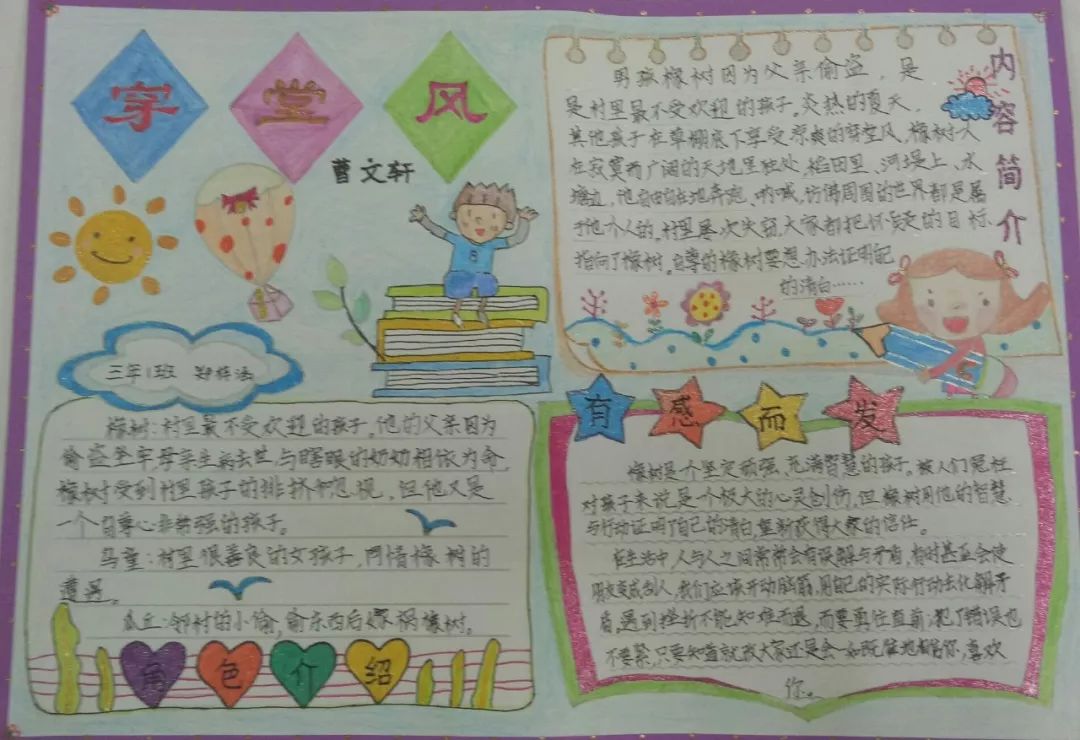 穿堂风
曹文轩
三年1班 郑梓涵
内容简介
男孩橡树因为父亲偷盗，是
是村里最不受欢迎的孩子。炎热的夏天，
其他孩子在草棚底下享受凉爽的穿堂风，橡树只
在寂寞而广阔的天地里独处，稻田里、河堤上、水
塘边，他自由自在地奔跑、呐喊，仿佛周围的世界都是属
于他个人的。村里屡次失窃，大家都把怀疑的目标
指向了橡树。自尊的橡树要想办法证明自己
的清白……
橡树：村里最不受欢迎的孩子。他的父亲因为
偷盗坐牢，母亲生病去世，与瞎眼的奶奶相依为命，
橡树受到村里孩子的排挤和忽视，但他又是
一个自尊心非常强的孩子。
乌童：村里很善良的女孩子，同情橡树的
遭遇。
瓜丘：邻村的小偷，偷东西后嫁祸橡树。
角色介绍
有感而发
橡树是个坚定顽强、充满智慧的孩子。被人们冤枉
对孩子来说是一个极大的心灵创伤，但橡树用他的智慧
与行动证明了自己的清白，重新获得大家的信任。
在生活中，人与人之间常常会有误解与矛盾，有时甚至会使
朋友变成敌人，我们应该开动脑筋，用自己的实际行动去化解矛
盾。遇到挫折不能知难而退，而要勇往直前；犯了错误也
不要紧，只要知道就改大家还是会一如既往地相信你，喜欢
你。